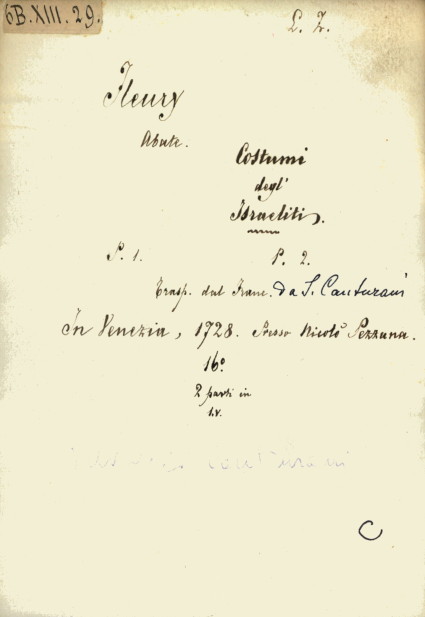 6B.XIII.29.
L. Z.
Fleury
Abate.
Costumi
degl'
Israeliti.
P. 1. P. 2.
Trasp. dal Franc. da S. Canturani
In Venezia, 1728. Presso Nicolò Pezzana.
16º
2 parti in
1.v.
Canturani
C